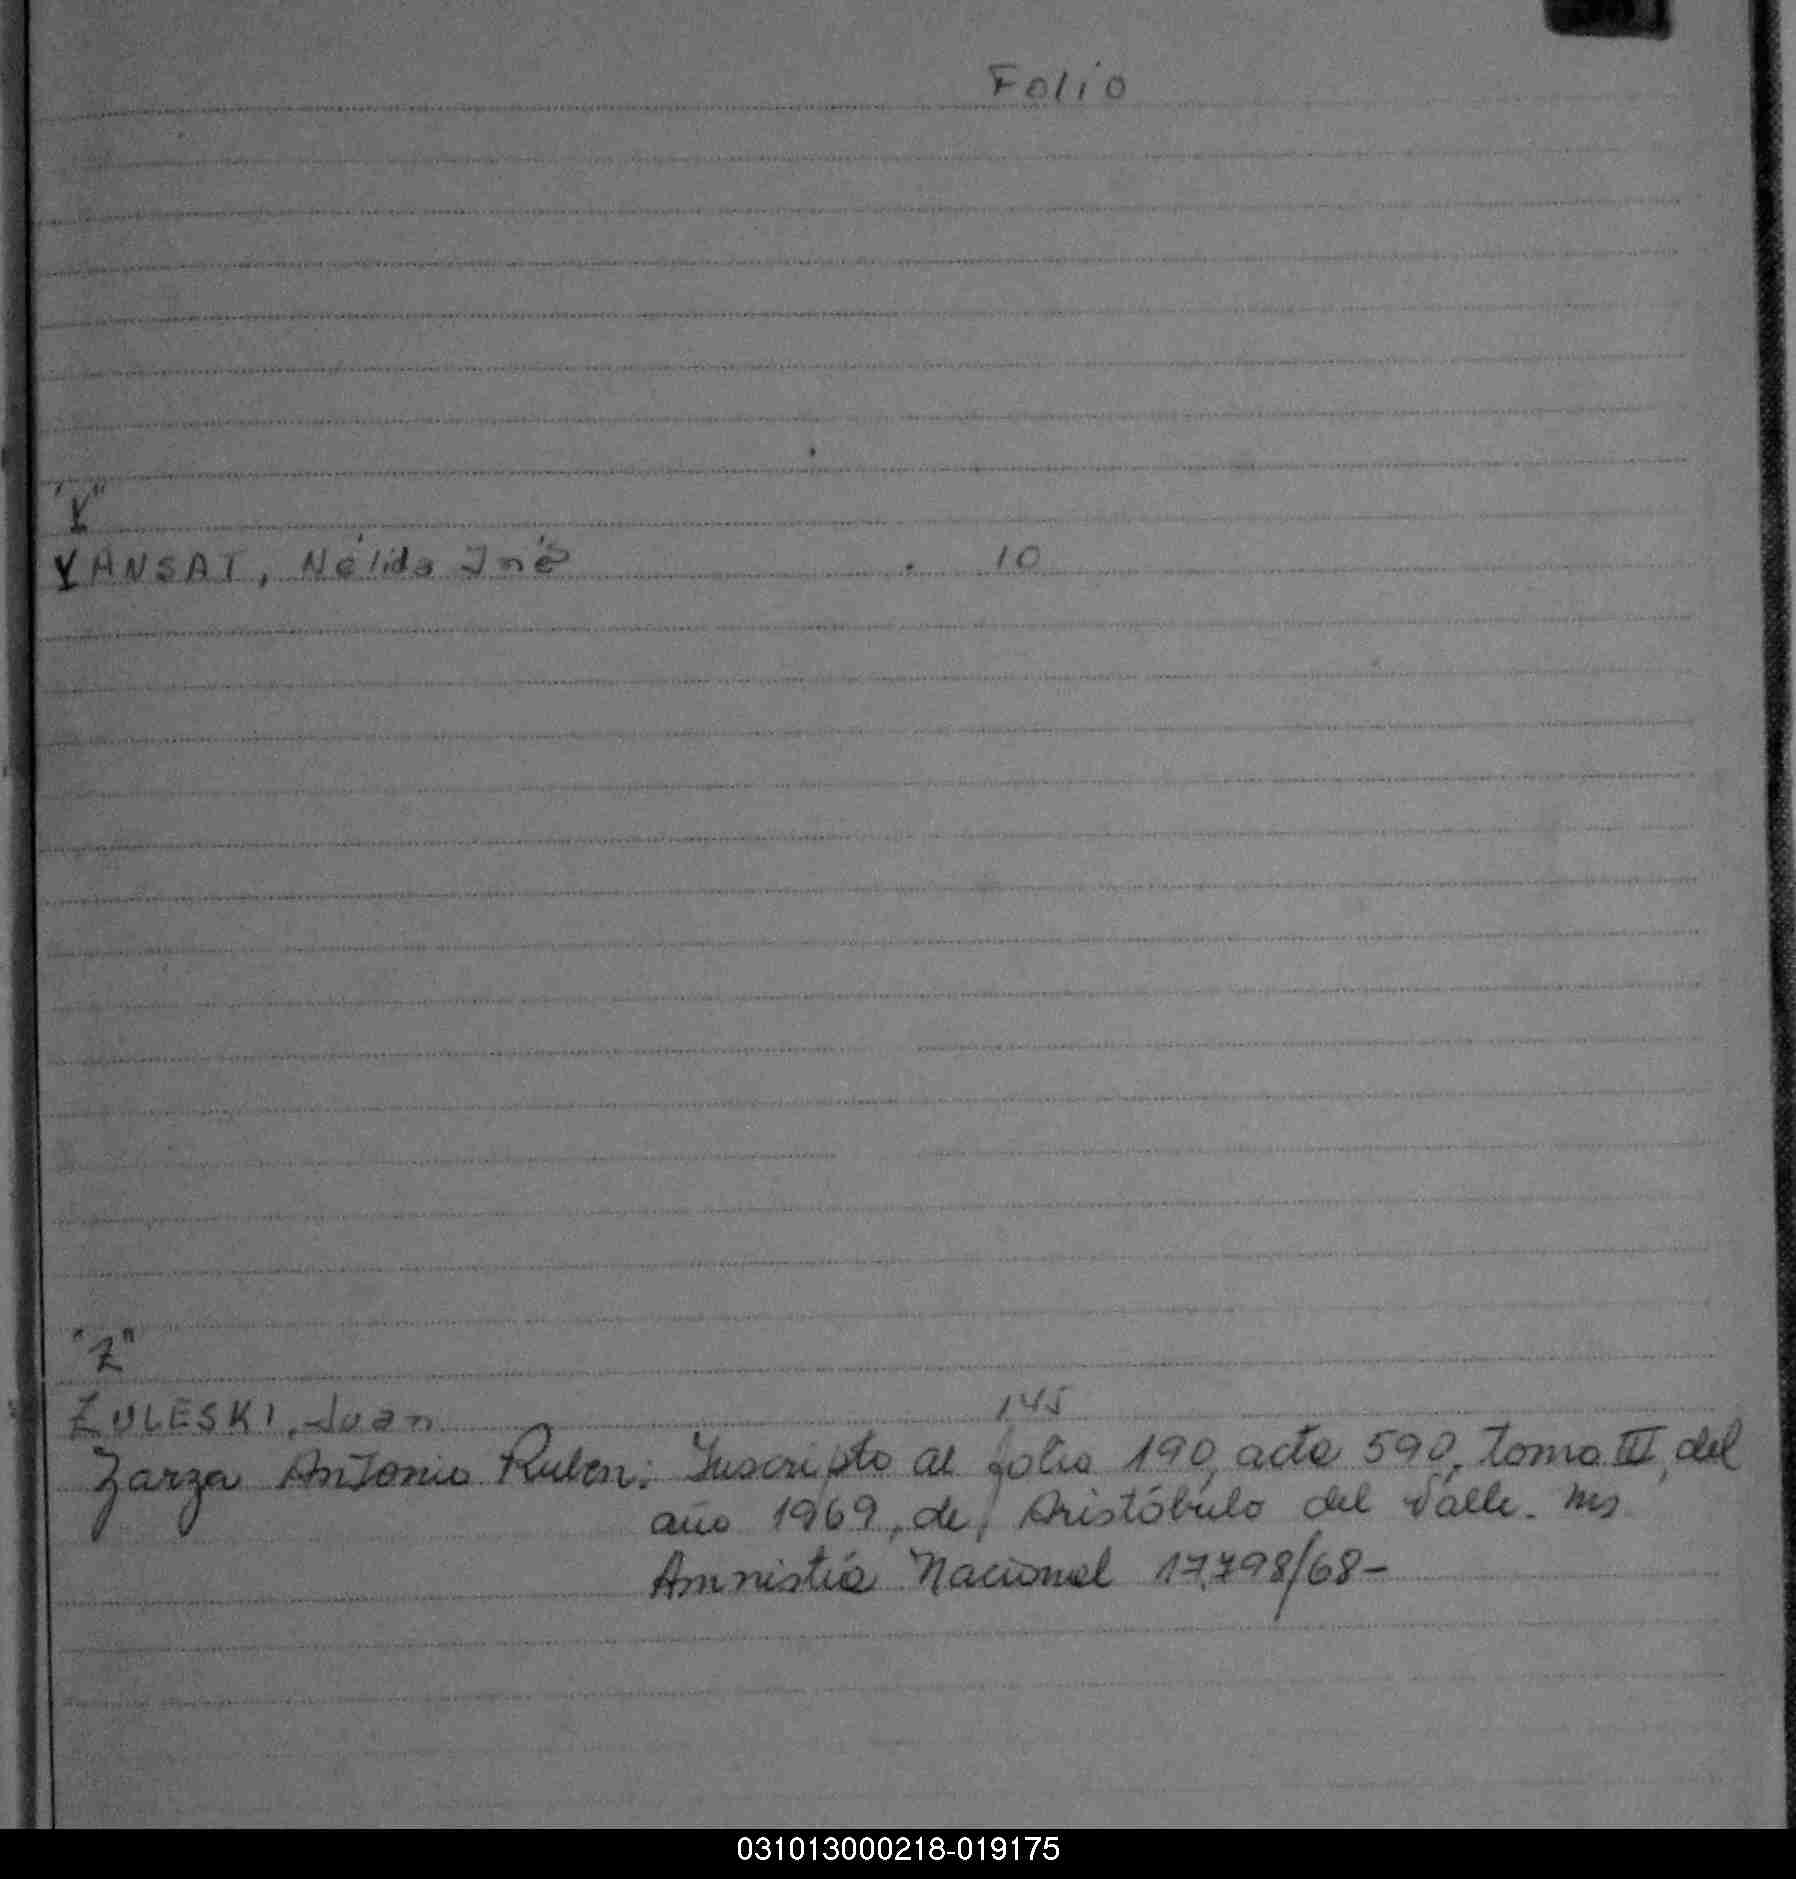 Folio
"Y"
YANSAT, Nélida Iné 10
"Z"
ZULESKI, Juan 145
Zarza Antonio Ruben: Inscripto al folio 190, acta 590, tomo III, del
año 1969, de Aristóbulo del Valle. Ms
Amnistía Nacional 17.798/68-
031013000218-019175